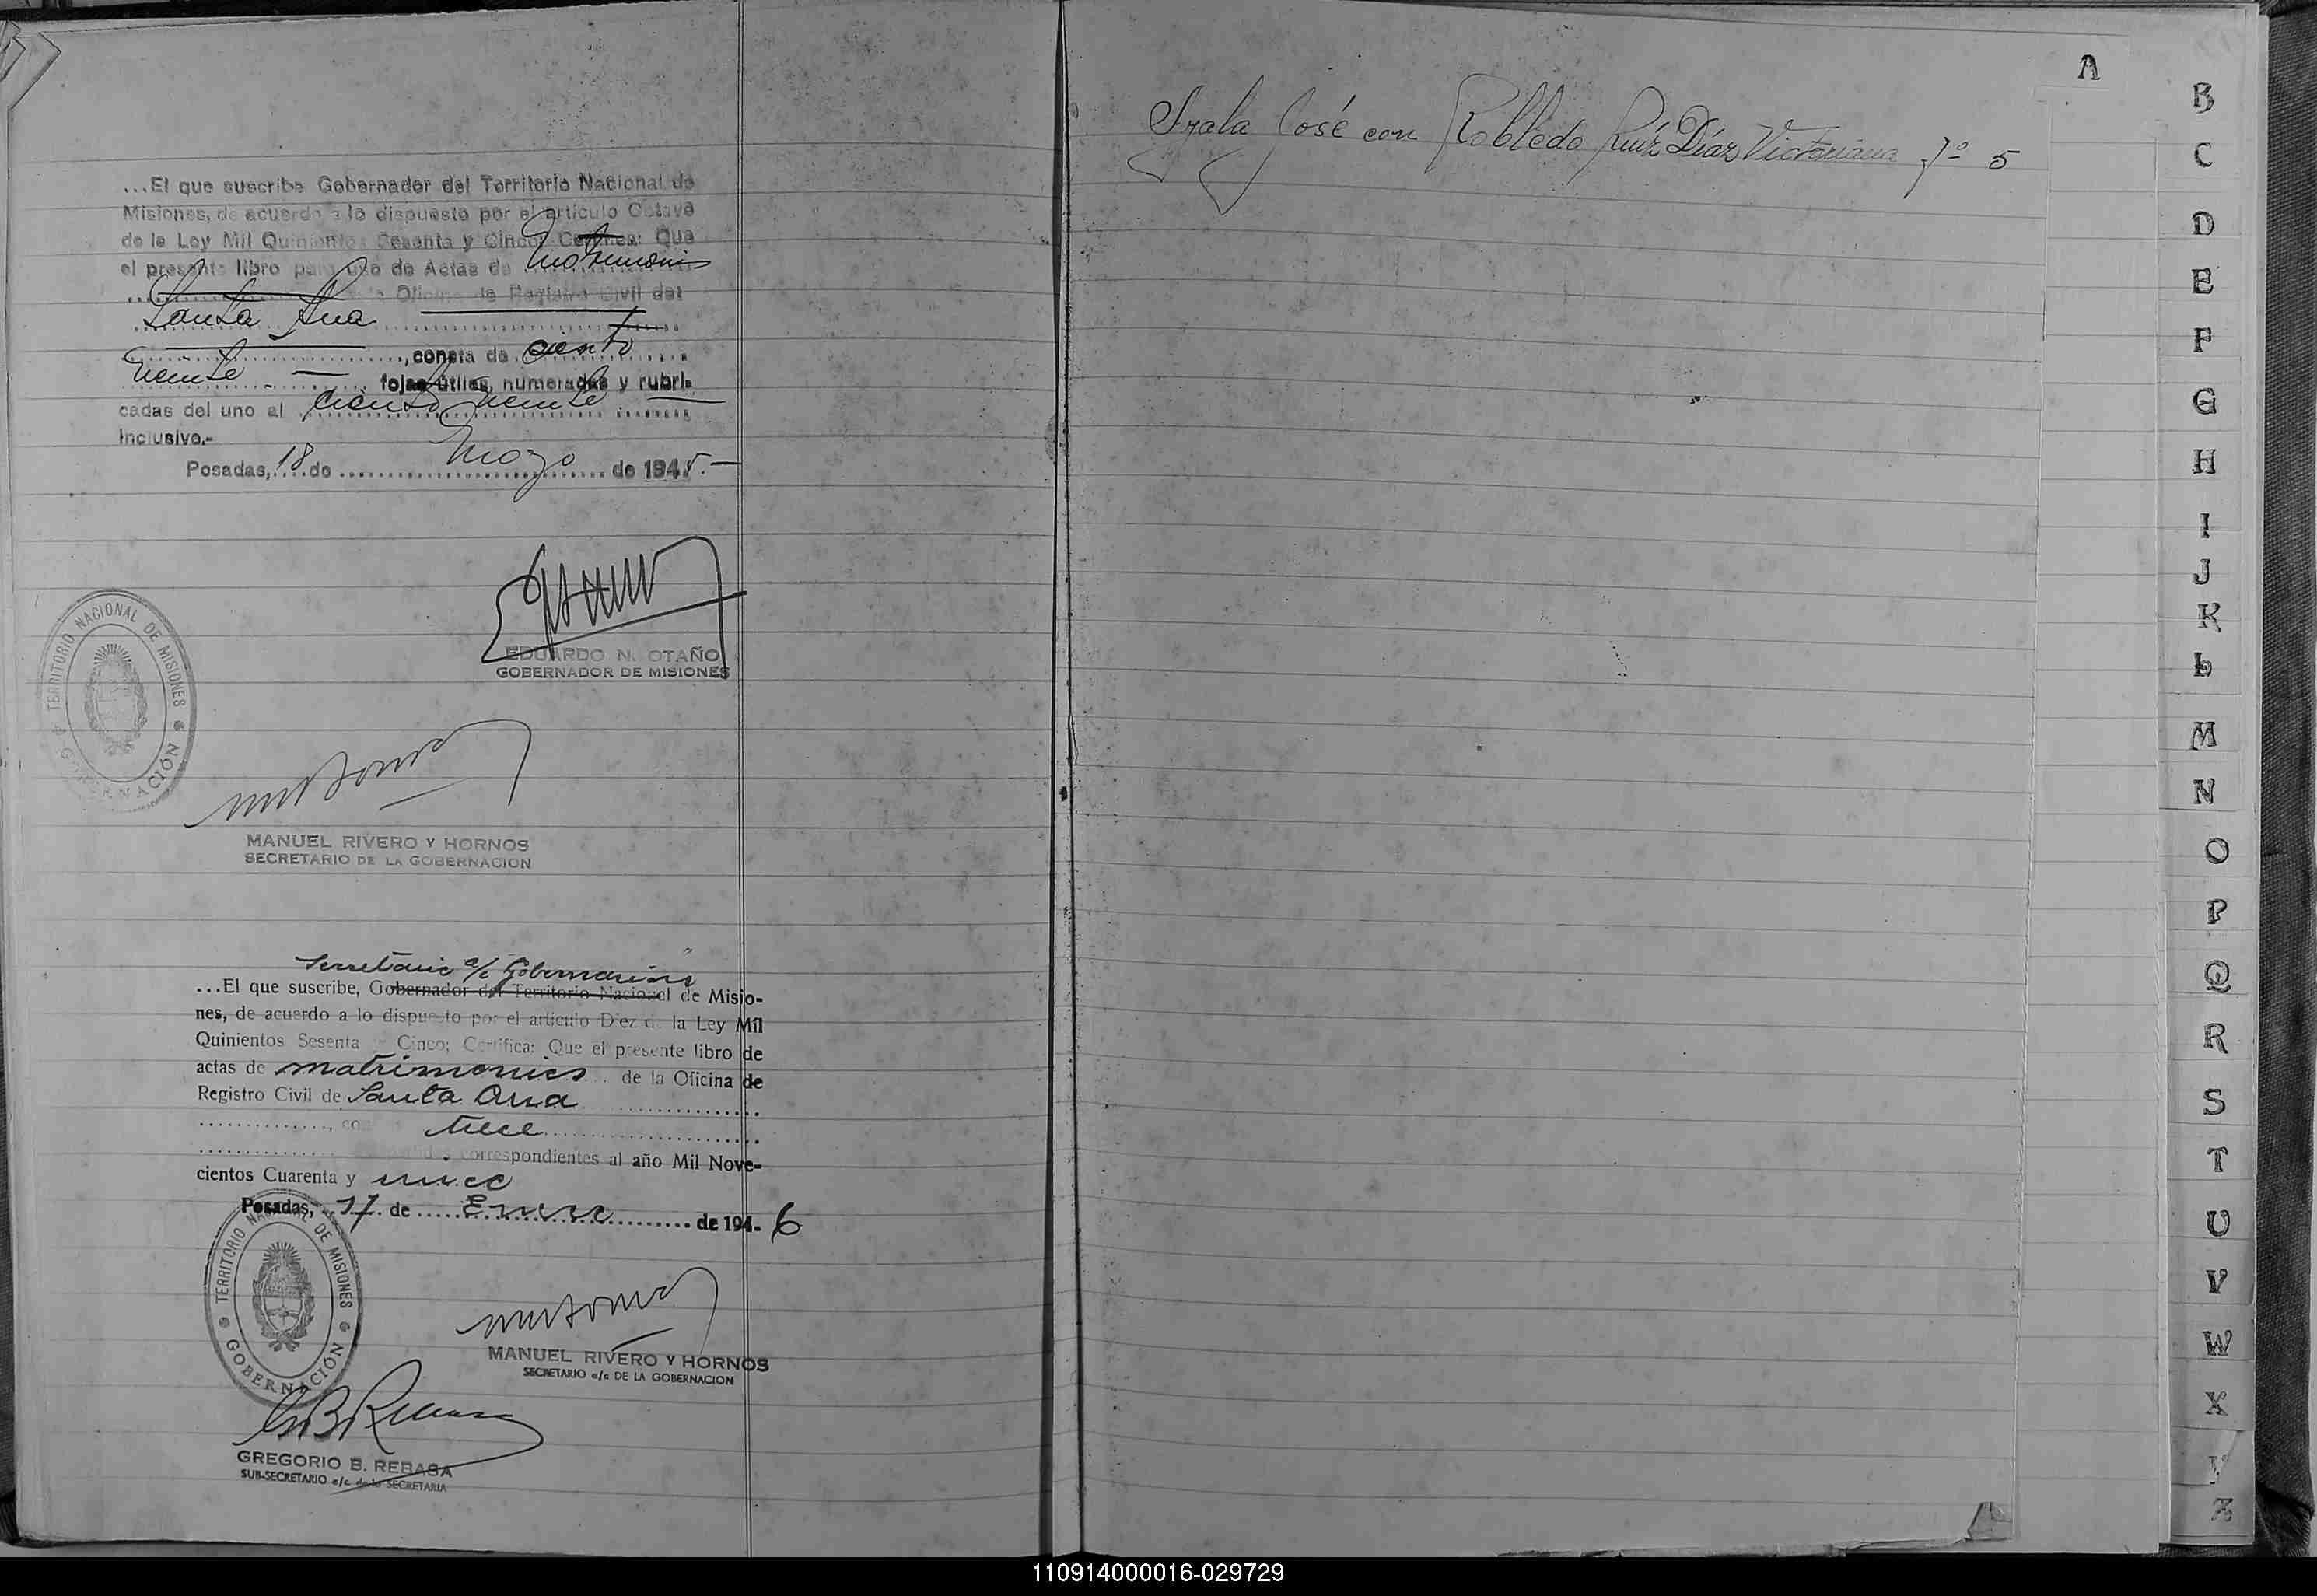 ...El que suscribe Gobernador del Territorio Nacional de
Misiones, de acuerdo a lo dispuesto por el artículo Octavo
de la Ley Mil Quinientos Sesenta y Cinco; Certifica: Que
el presente libro para uso de Actas de Matrimonios
de la Oficina de Registro Civil del
Santa Ana
, consta de ciento
veinte fojas útiles, numeradas y rubri-
cadas del uno al ciento veinte
inclusive.-
Posadas, 18 de Mayo de 1945.-
TERRITORIO NACIONAL DE MISIONES
GOBERNACIÓN
EDUARDO N. OTAÑO
GOBERNADOR DE MISIONES
MANUEL RIVERO Y HORNOS
SECRETARIO DE LA GOBERNACION
Secretario a/c Gobernación
...El que suscribe, Gobernador del Territorio Nacional de Misio-
nes, de acuerdo a lo dispuesto por el artículo Diez de la Ley Mil
Quinientos Sesenta y Cinco; Certifica: Que el presente libro de
actas de matrimonios de la Oficina de
Registro Civil de Santa Ana
trece
correspondientes al año Mil Nove-
cientos Cuarenta y
Posadas, 17 de Enero de 194. 6
TERRITORIO NACIONAL DE MISIONES
GOBERNACIÓN
MANUEL RIVERO Y HORNOS
SECRETARIO a/c DE LA GOBERNACION
GREGORIO B. REBASA
SUB-SECRETARIO a/c de la SECRETARIA
Irala José con Robledo Ruíz Díaz Victoriana fº 5
A
B
C
D
E
F
G
H
I
J
K
L
M
N
O
P
Q
R
S
T
U
V
W
X
Y
Z
110914000016-029729